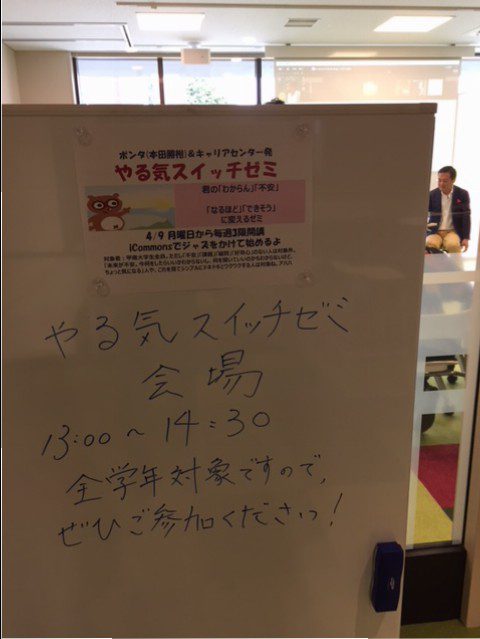 ポンタ(本田勝裕)&キャリアセンター発
やる気スイッチゼミ
君の「わからん」「不安」
「なるほど」「できそう」
に変えるゼミ
4/9 月曜日から毎週3限開講
iCommonsでジャズをかけて始めるよ
やる気スイッチゼミ
会場
13:00~14:30
全学年対象ですので、
ぜひご参加くださいっ!